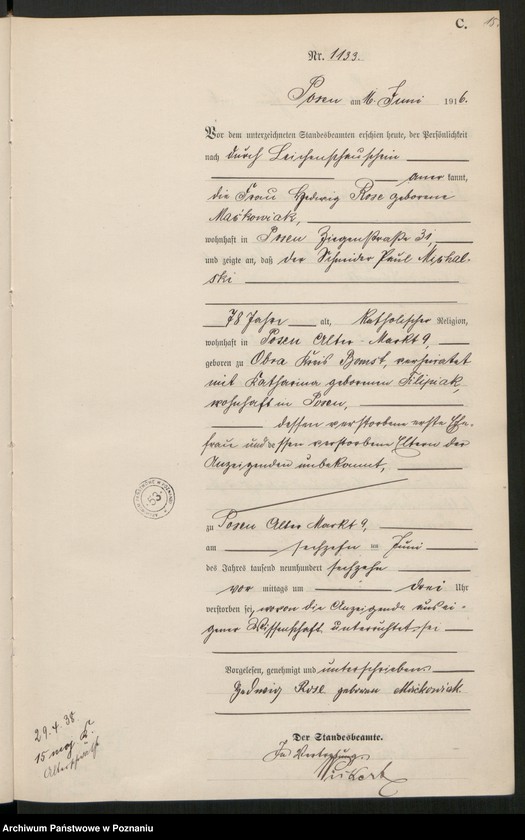 C.
15.
Nr. 1133.
Posen am 16. Juni 1916.
Vor dem unterzeichneten Standesbeamten erschien heute, der Persönlichkeit
nach durch Leichenschauschein
anerkannt,
die Frau Hedwig Rose geborene
Maćkowiak,
wohnhaft in Posen Ziegenstraße 31,
und zeigte an, daß der Schneider Paul Michal-
ski
78 Jahre alt, katholischer Religion,
wohnhaft in Posen Alter-Markt 9,
geboren zu Obra Kreis Bomst, verheiratet
mit Katharina geborenen Filipiak,
wohnhaft in Posen,
dessen verstorbene erste Ehe-
frau und dessen verstorbene Eltern der
Anzeigenden unbekannt,
zu Posen Alter Markt 9,
am sechzehnten Juni
des Jahres tausend neunhundert sechzehn
vormittags um drei Uhr
verstorben sei, wovon die Anzeigende aus ei-
gener Wissenschaft unterrichtet sei
Vorgelesen, genehmigt und unterschrieben
Hedwig Rose geboren Maćkowiak
Der Standesbeamte.
In Vertretung
29.4.38
15
Archiwum Państwowe w Poznaniu